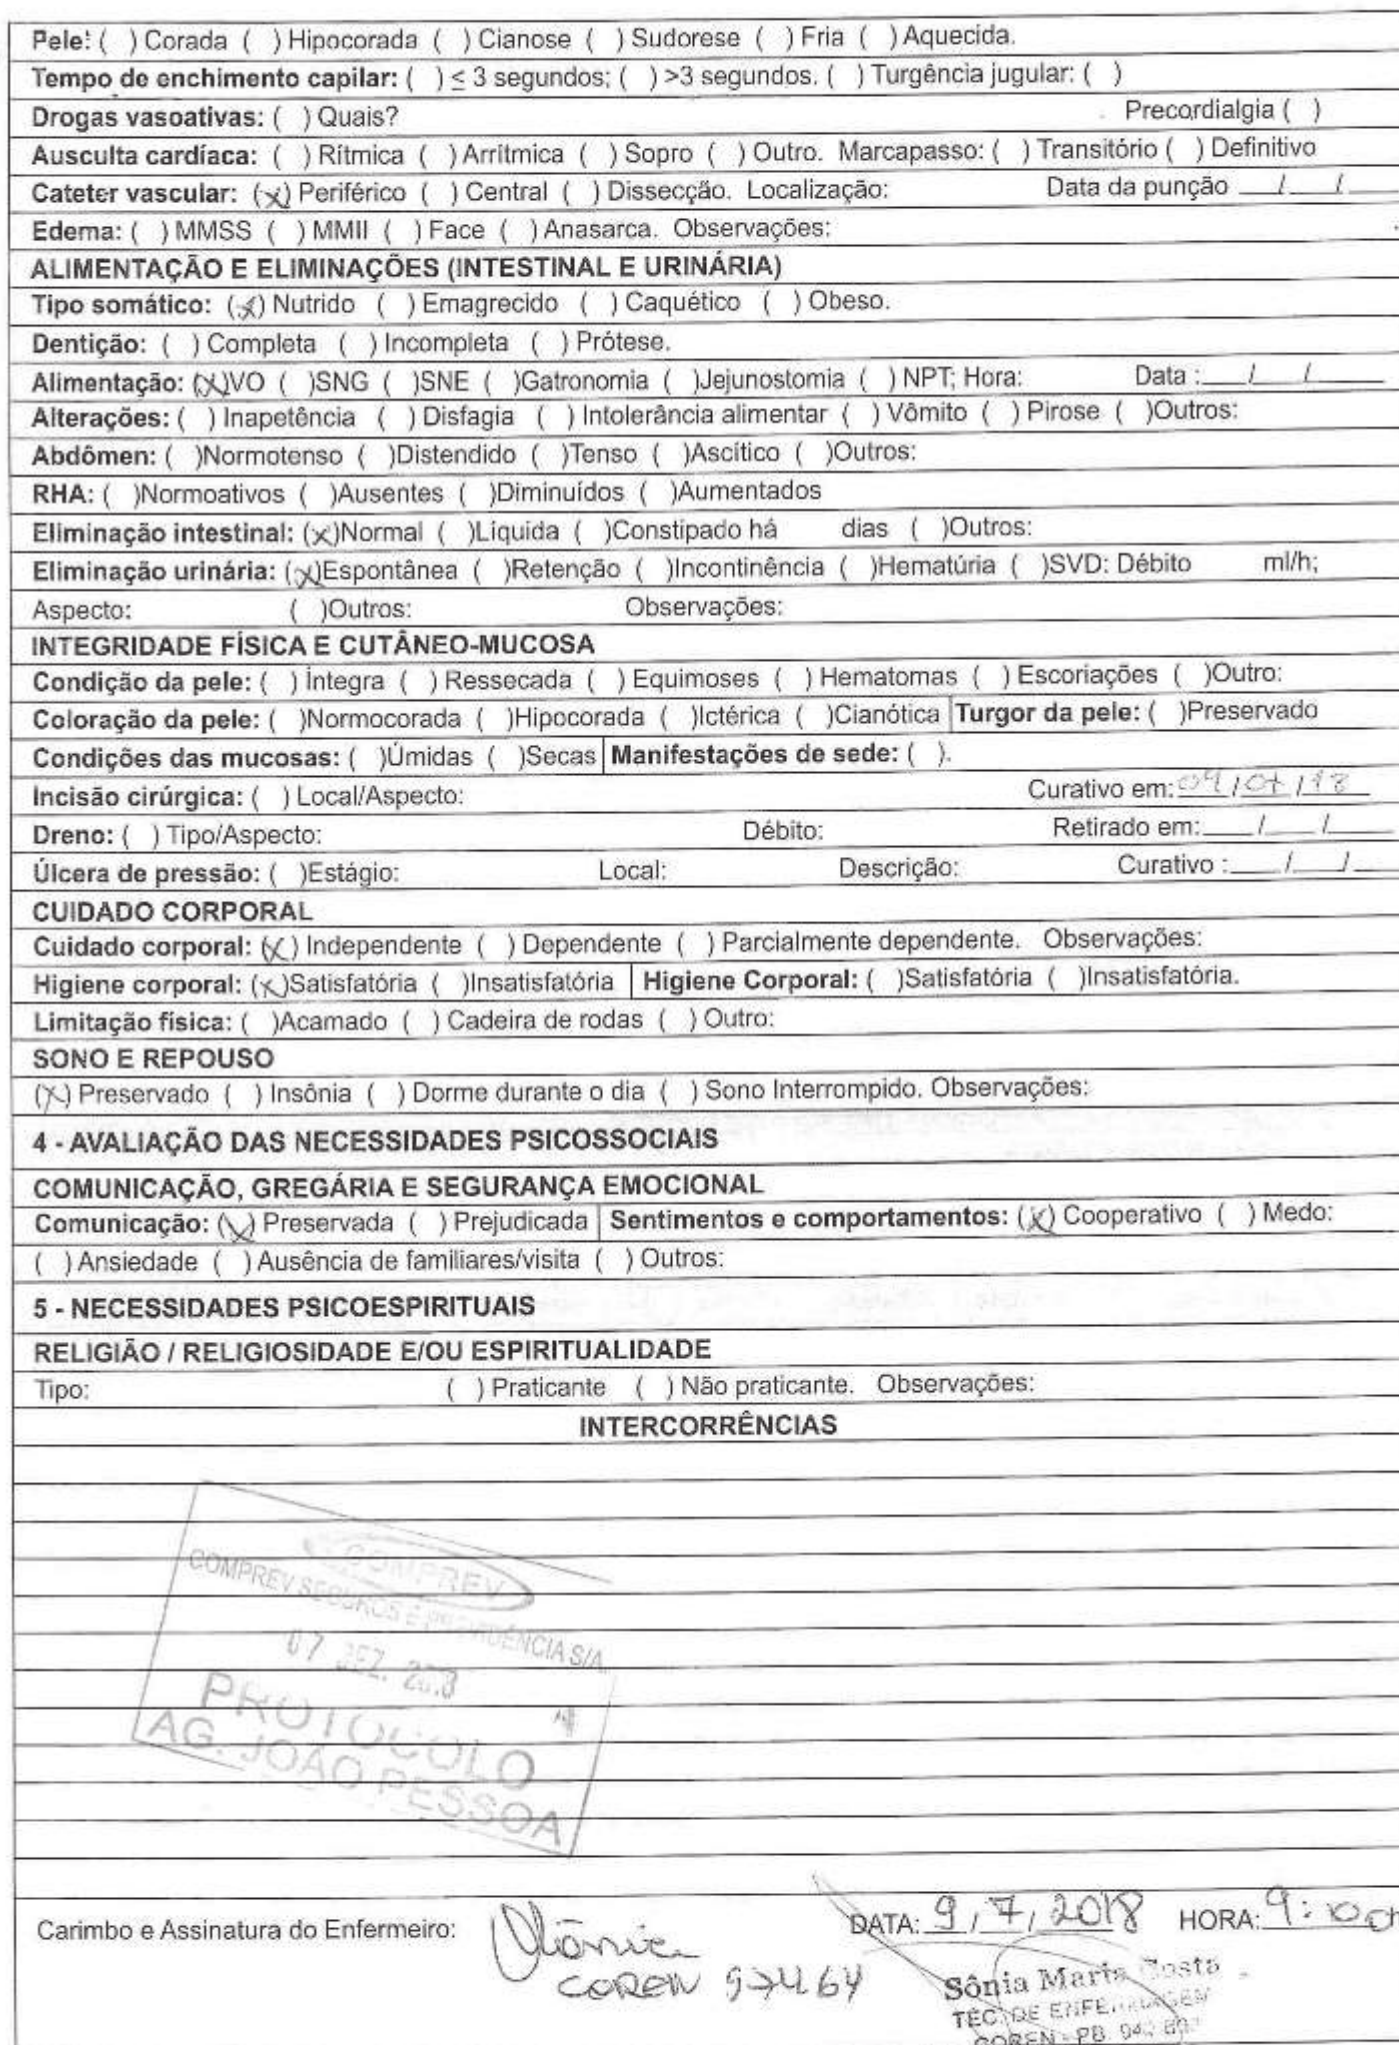 Pele: ( ) Corada ( ) Hipocorada ( ) Cianose ( ) Sudorese ( ) Fria ( ) Aquecida.
Tempo de enchimento capilar: ( ) ≤ 3 segundos; ( ) >3 segundos. ( ) Turgência jugular: ( )
Drogas vasoativas: ( ) Quais? Precordialgia ( )
Ausculta cardíaca: ( ) Rítmica ( ) Arrítmica ( ) Sopro ( ) Outro. Marcapasso: ( ) Transitório ( ) Definitivo
Cateter vascular: (x) Periférico ( ) Central ( ) Dissecção. Localização: Data da punção ___/___/___
Edema: ( ) MMSS ( ) MMII ( ) Face ( ) Anasarca. Observações:
ALIMENTAÇÃO E ELIMINAÇÕES (INTESTINAL E URINÁRIA)
Tipo somático: (x) Nutrido ( ) Emagrecido ( ) Caquético ( ) Obeso.
Dentição: ( ) Completa ( ) Incompleta ( ) Prótese.
Alimentação: (x)VO ( )SNG ( )SNE ( )Gatronomia ( )Jejunostomia ( ) NPT; Hora: Data :___/___/___
Alterações: ( ) Inapetência ( ) Disfagia ( ) Intolerância alimentar ( ) Vômito ( ) Pirose ( )Outros:
Abdômen: ( )Normotenso ( )Distendido ( )Tenso ( )Ascítico ( )Outros:
RHA: ( )Normoativos ( )Ausentes ( )Diminuídos ( )Aumentados
Eliminação intestinal: (x)Normal ( )Líquida ( )Constipado há dias ( )Outros:
Eliminação urinária: (x)Espontânea ( )Retenção ( )Incontinência ( )Hematúria ( )SVD: Débito ml/h;
Aspecto: ( )Outros: Observações:
INTEGRIDADE FÍSICA E CUTÂNEO-MUCOSA
Condição da pele: ( ) Íntegra ( ) Ressecada ( ) Equimoses ( ) Hematomas ( ) Escoriações ( )Outro:
Coloração da pele: ( )Normocorada ( )Hipocorada ( )Ictérica ( )Cianótica Turgor da pele: ( )Preservado
Condições das mucosas: ( )Úmidas ( )Secas Manifestações de sede: ( ).
Incisão cirúrgica: ( ) Local/Aspecto: Curativo em: 09/07/18
Dreno: ( ) Tipo/Aspecto: Débito: Retirado em:___/___/___
Úlcera de pressão: ( )Estágio: Local: Descrição: Curativo :___/___/___
CUIDADO CORPORAL
Cuidado corporal: (x) Independente ( ) Dependente ( ) Parcialmente dependente. Observações:
Higiene corporal: (x)Satisfatória ( )Insatisfatória Higiene Corporal: ( )Satisfatória ( )Insatisfatória.
Limitação física: ( )Acamado ( ) Cadeira de rodas ( ) Outro:
SONO E REPOUSO
(x) Preservado ( ) Insônia ( ) Dorme durante o dia ( ) Sono Interrompido. Observações:
4 - AVALIAÇÃO DAS NECESSIDADES PSICOSSOCIAIS
COMUNICAÇÃO, GREGÁRIA E SEGURANÇA EMOCIONAL
Comunicação: (x) Preservada ( ) Prejudicada Sentimentos e comportamentos: (x) Cooperativo ( ) Medo:
( ) Ansiedade ( ) Ausência de familiares/visita ( ) Outros:
5 - NECESSIDADES PSICOESPIRITUAIS
RELIGIÃO / RELIGIOSIDADE E/OU ESPIRITUALIDADE
Tipo: ( ) Praticante ( ) Não praticante. Observações:
INTERCORRÊNCIAS
COMPREV
COMPREV SEGUROS E PREVIDÊNCIA S/A.
07 DEZ. 
PROTOCOLO
AG. JOÃO PESSOA
Carimbo e Assinatura do Enfermeiro: DATA: 9/7/2018 HORA: 9:00h
COREN 97464
Sônia Maria Costa
TEC. DE ENFERMAGEM
COREN - PB